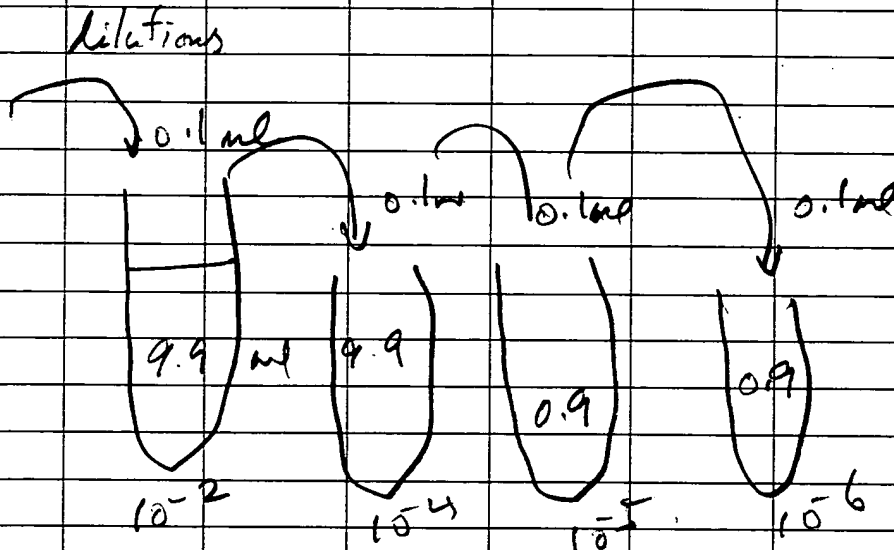 dilutions
0.1 ml
0.1m 0.1ml 0.1ml
9.9 ml 9.9 0.9 0.9
10⁻² 10⁻⁴ 10⁻⁵ 10⁻⁶